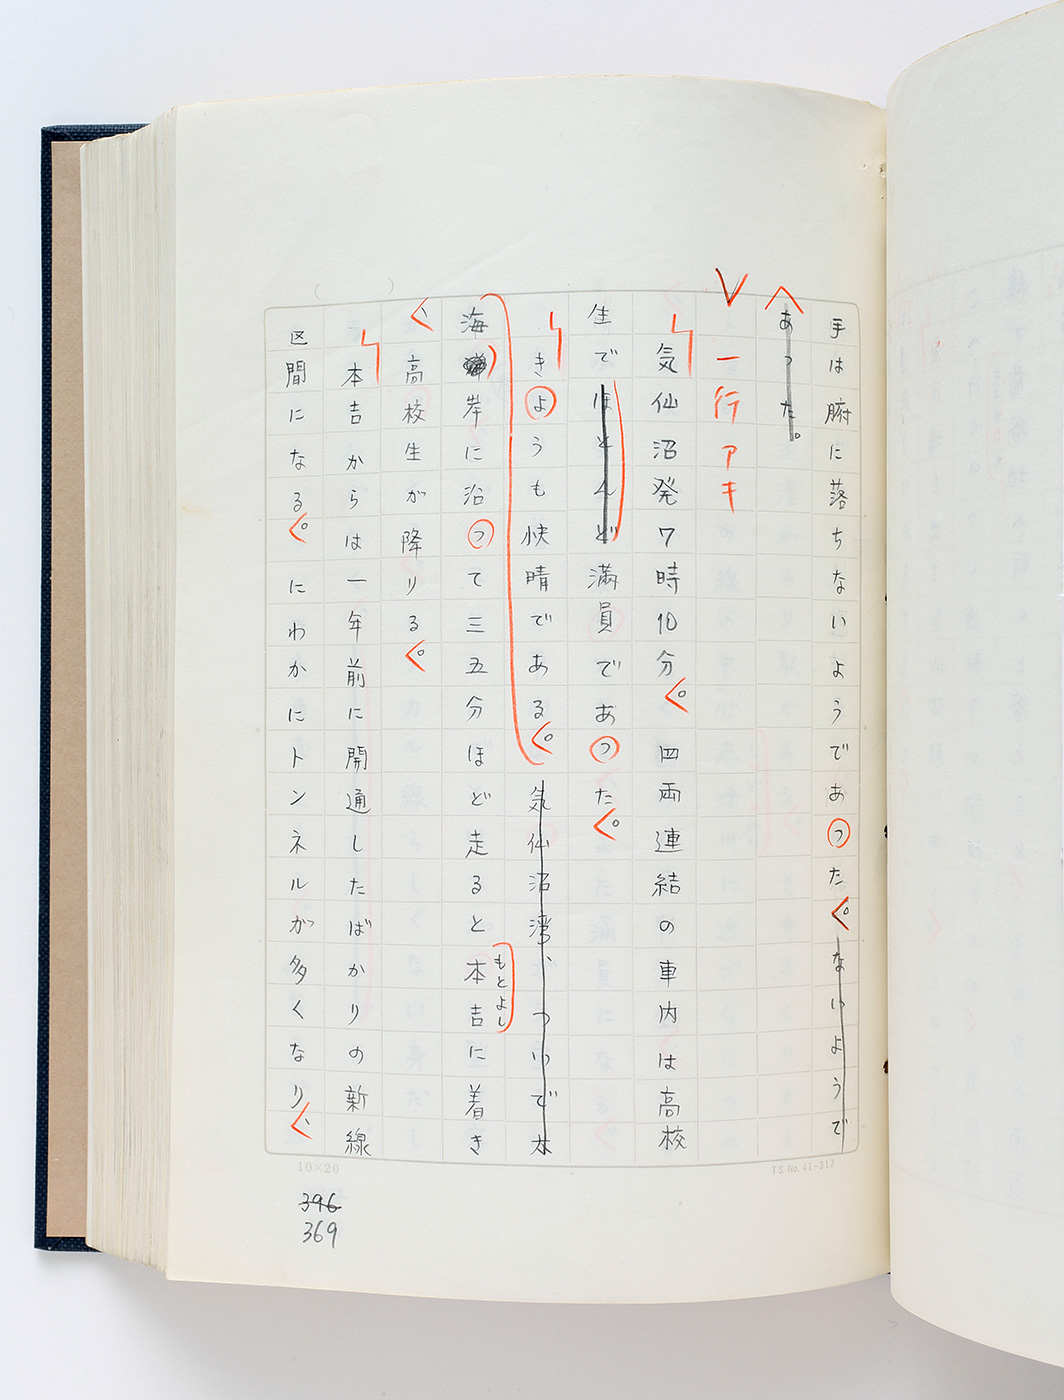 手は腑に落ちないようであった。ないようで
あった。
一行アキ
気仙沼発7時10分。四両連結の車内は高校
生でほとんど満員であった。
きょうも快晴である。気仙沼湾、ついで太
海岸に沿って三五分ほど走ると本吉に着き
もとよし
、高校生が降りる。
本吉からは一年前に開通したばかりの新線
区間になる。にわかにトンネルが多くなり、
10×20
TS.No.41-317
396
369